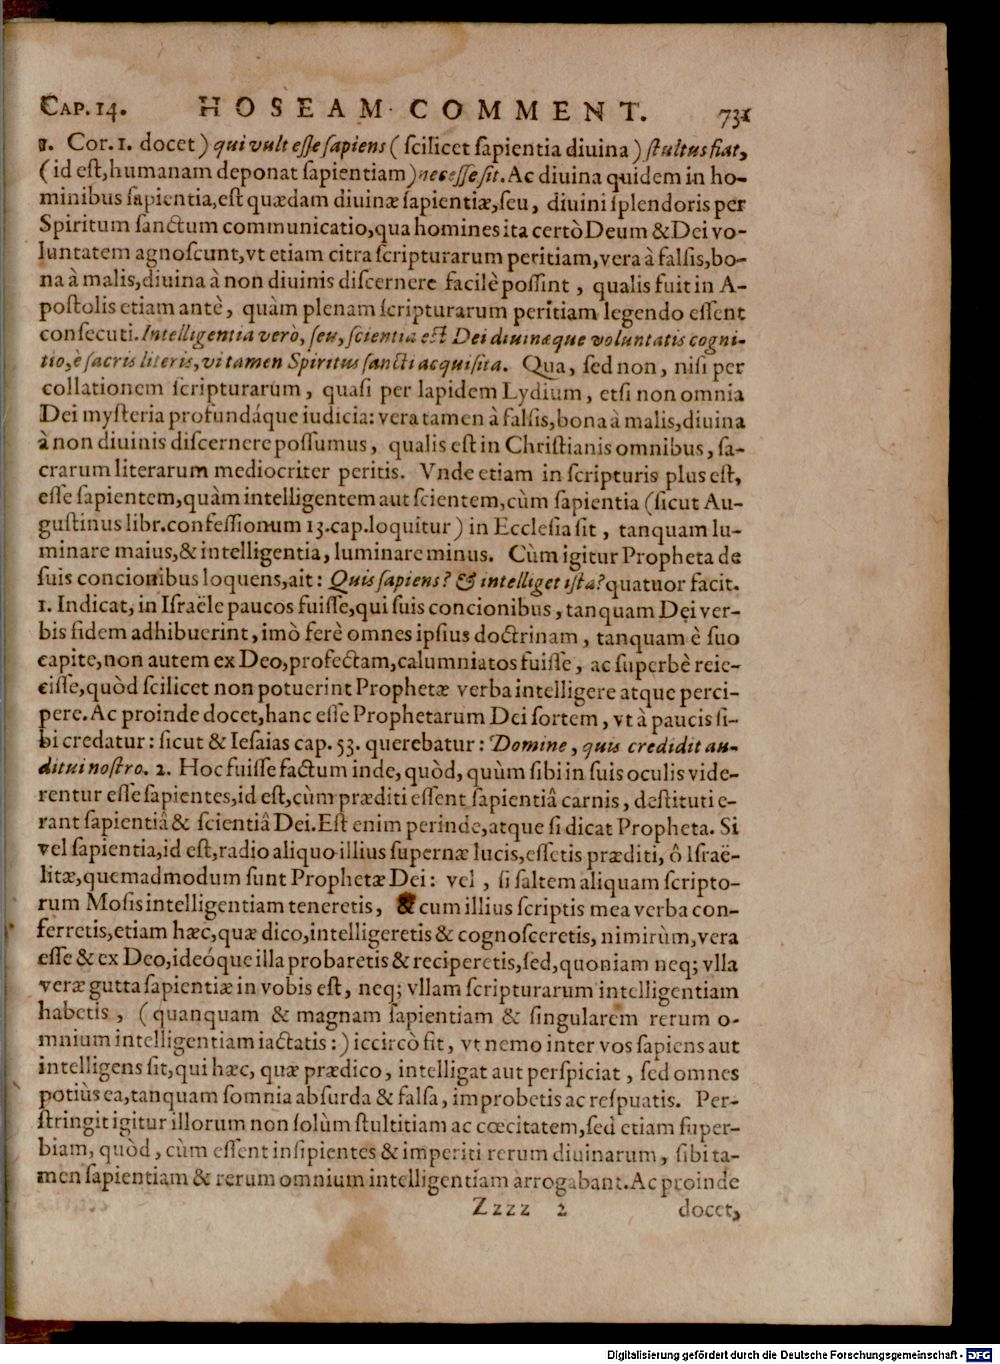 CAP. 14. HOSEAM COMMENT. 731
1. Cor. 1. docet) qui vult eſſe ſapiens (ſcilicet ſapientia diuina) ſtultus fiat,
(id eſt, humanam deponat ſapientiam) neceſſe ſit. Ac diuina quidem in ho-
minibus ſapientia, eſt quædam diuinæ ſapientiæ, ſeu, diuini ſplendoris per
Spiritum ſanctum communicatio, qua homines ita certò Deum & Dei vo-
luntatem agnoſcunt, vt etiam citra ſcripturarum peritiam, vera à falſis, bo-
na à malis, diuina à non diuinis diſcernere facilè poſſint, qualis fuit in A-
poſtolis etiam antè, quàm plenam ſcripturarum peritiam legendo eſſent
conſecuti. Intelligentia verò, ſeu, ſcientia eſt Dei diuinæque voluntatis cogni-
tio, è ſacris literis, vi tamen Spiritus ſancti acquiſita. Qua, ſed non, niſi per
collationem ſcripturarum, quaſi per lapidem Lydium, etſi non omnia
Dei myſteria profundáque iudicia: vera tamen à falſis, bona à malis, diuina
à non diuinis diſcernere poſſumus, qualis eſt in Chriſtianis omnibus, ſa-
crarum literarum mediocriter peritis. Vnde etiam in ſcripturis plus eſt,
eſſe ſapientem, quàm intelligentem aut ſcientem, cùm ſapientia (ſicut Au-
guſtinus libr. confeſſionum 13. cap. loquitur) in Eccleſia ſit, tanquam lu-
minare maius, & intelligentia, luminare minus. Cùm igitur Propheta de
ſuis concionibus loquens, ait: Quis ſapiens? & intelliget iſta? quatuor facit.
1. Indicat, in Iſraële paucos fuiſſe, qui ſuis concionibus, tanquam Dei ver-
bis fidem adhibuerint, imò ferè omnes ipſius doctrinam, tanquam è ſuo
capite, non autem ex Deo, profectam, calumniatos fuiſſe, ac ſuperbè reie-
ciſſe, quòd ſcilicet non potuerint Prophetæ verba intelligere atque perci-
pere. Ac proinde docet, hanc eſſe Prophetarum Dei ſortem, vt à paucis ſi-
bi credatur: ſicut & Ieſaias cap. 53. querebatur: Domine, quis credidit au-
ditui noſtro. 2. Hoc fuiſſe factum inde, quòd, quùm ſibi in ſuis oculis vide-
rentur eſſe ſapientes, id eſt, cùm præditi eſſent ſapientiâ carnis, deſtituti e-
rant ſapientiâ & ſcientiâ Dei. Eſt enim perinde, atque ſi dicat Propheta. Si
vel ſapientia, id eſt, radio aliquo illius ſupernæ lucis, eſſetis præditi, ô Iſraë-
litæ, quemadmodum ſunt Prophetæ Dei: vel, ſi ſaltem aliquam ſcripto-
rum Moſis intelligentiam teneretis, & cum illius ſcriptis mea verba con-
ferretis, etiam hæc, quæ dico, intelligeretis & cognoſceretis, nimirùm, vera
eſſe & ex Deo, ideóque illa probaretis & reciperetis, ſed, quoniam neq; vlla
veræ gutta ſapientiæ in vobis eſt, neq; vllam ſcripturarum intelligentiam
habetis, (quanquam & magnam ſapientiam & ſingularem rerum o-
mnium intelligentiam iactatis:) iccircò fit, vt nemo inter vos ſapiens aut
intelligens ſit, qui hæc, quæ prædico, intelligat aut perſpiciat, ſed omnes
potiùs ea, tanquam ſomnia abſurda & falſa, improbetis ac reſpuatis. Per-
ſtringit igitur illorum non ſolùm ſtultitiam ac cœcitatem, ſed etiam ſuper-
biam, quòd, cùm eſſent inſipientes & imperiti rerum diuinarum, ſibi ta-
men ſapientiam & rerum omnium intelligentiam arrogabant. Ac proinde
Zzzz 2 docet,
Digitalisierung gefördert durch die Deutsche Forschungsgemeinschaft - DFG